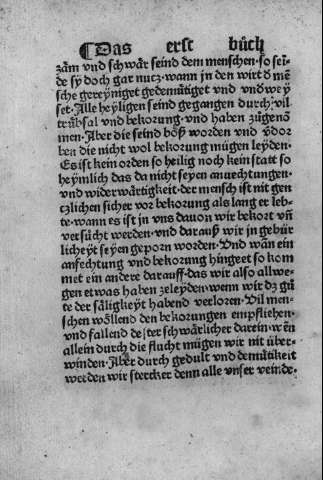 ¶Das erst bůch
zam vnd schwår seind dem menschen. so sei⸗
de sy doch gar nucz. wann in den wirt d mē
sche gereyniget gedemůtiget vnd vnd wey
set. Alle heyligen seind gegangen durch vil
trůbsal vnd bekorung. vnd haben zůgenō
men. Aber die seind bőß worden vnd vdor
ben die nit wol bekorung mügen leyden.
Es ist kein orden so heilig noch kein statt so
heymlich das da nit seyen anuechtungen.
vnd widerwårtigkeit. der mensch ist nit gen
tzlichen sicher vor bekorung als lang er leb⸗
te. wann es ist in vns dauon wir bekort vñ
versůcht werden. vnd darauß wir in gebür
licheyt seyen geporn worden. Vnd wan ein
anfechtung vnd bekorung hingeet so kom
met ein andere darauff. das wir also allwe⸗
gen etwas haben zeleyden. wenn wir dz gů
te der såligkeyt habend verloren. Vil men⸗
schen wőllend den bekorungen empfliehen.
vnd fallend dester schwårlicher darein. wen
allein durch die flucht mügen wir nit über⸗
winden. Aber durch gedult vnd demůtikeit
werden wir stercker denn alle vnser veinde.